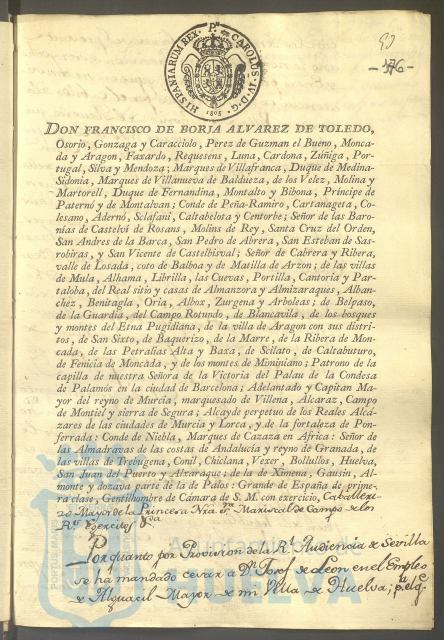 HISPANIARUM REX. CAROLUS IV D. G.
1805
93
- 176 -
DON FRANCISCO DE BORJA ALVAREZ DE TOLEDO,
Osorio, Gonzaga y Caracciolo, Perez de Guzman el Bueno, Monca-
da y Aragon, Faxardo, Requesens, Luna, Cardona, Zúñiga, Por-
tugal, Silva y Mendoza; Marques de Villafranca, Duque de Medina-
Sidonia, Marques de Villanueva de Baldueza, de los Velez, Molina y
Martorell, Duque de Fernandina, Montalto y Bibona, Príncipe de
Paternó y de Montalvan; Conde de Peña-Ramiro, Cartanageta, Co-
lesano, Adernó, Sclafani, Caltabelota y Centorbe; Señor de las Baro-
nías de Castelvi de Rosans, Molins de Rey, Santa Cruz del Orden,
San Andres de la Barca, San Pedro de Abrera, San Esteban de Sas-
robiras, y San Vicente de Castelbisval; Señor de Cabrera y Ribera,
valle de Losada, coto de Balboa y de Matilla de Arzon; de las villas
de Mula, Alhama, Librilla, las Cuevas, Portilla, Cantoria y Par-
taloba, del Real sitio y casas de Almanzora y Almizaraques, Alban-
chez, Benitagla, Oria, Albox, Zurgena y Arboleas; de Belpaso,
de la Guardia, del Campo Rotundo, de Blancavila, de los bosques
y montes del Etna Pugidiana, de la villa de Aragon con sus distri-
tos, de San Sixto, de Baquerizo, de la Marre, de la Ribera de Mon-
cada, de las Petralias Alta y Baxa, de Scilato, de Caltabuturo,
de Fenicia de Moncada, y de los montes de Miminiano; Patrono de la
capilla de nuestra Señora de la Victoria del Palau de la Condesa
de Palamós en la ciudad de Barcelona; Adelantado y Capitan Ma-
yor del reyno de Murcia, marquesado de Villena, Alcaraz, Campo
de Montiel y sierra de Segura; Alcayde perpetuo de los Reales Alcá-
zares de las ciudades de Murcia y Lorca, y de la fortaleza de Pon-
ferrada: Conde de Niebla, Marques de Cazaza en Africa: Señor de
las Almadravas de las costas de Andalucía y reyno de Granada, de
las villas de Trebugena, Conil, Chiclana, Vexer, Bollullos, Huelva,
San Juan del Puerto y Alvaraque; de la de Ximena, Gausin, Al-
monte y dozava parte de la de Palos: Grande de España de prime-
ra clase, Gentilhombre de Cámara de S. M. con exercicio, Caballeri-
zo Mayor de la Princesa Nra. Sra. Mariscal de Campo de los
Rs. Egercitos &da
Por quanto por Provision de la Rl. Audiencia de Sevilla
se ha mandado cesar a Dn. Josef de Leon en el Empleo
de Alguacil Mayor de mi Villa de Huelva;
Ayuntamiento de
HUELVA
PORTUS MARIS